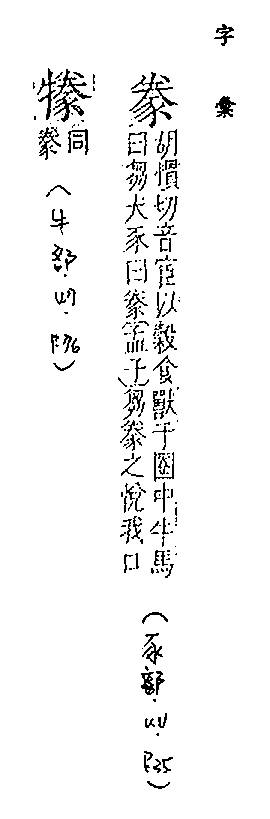 字彙
豢 胡慣切音宦以穀食獸于圈中牛馬
曰芻犬豕曰豢孟子芻豢之悅我口
(豕部.丩.P.35)
㹖 同
豢
(牛部.切.P.76)